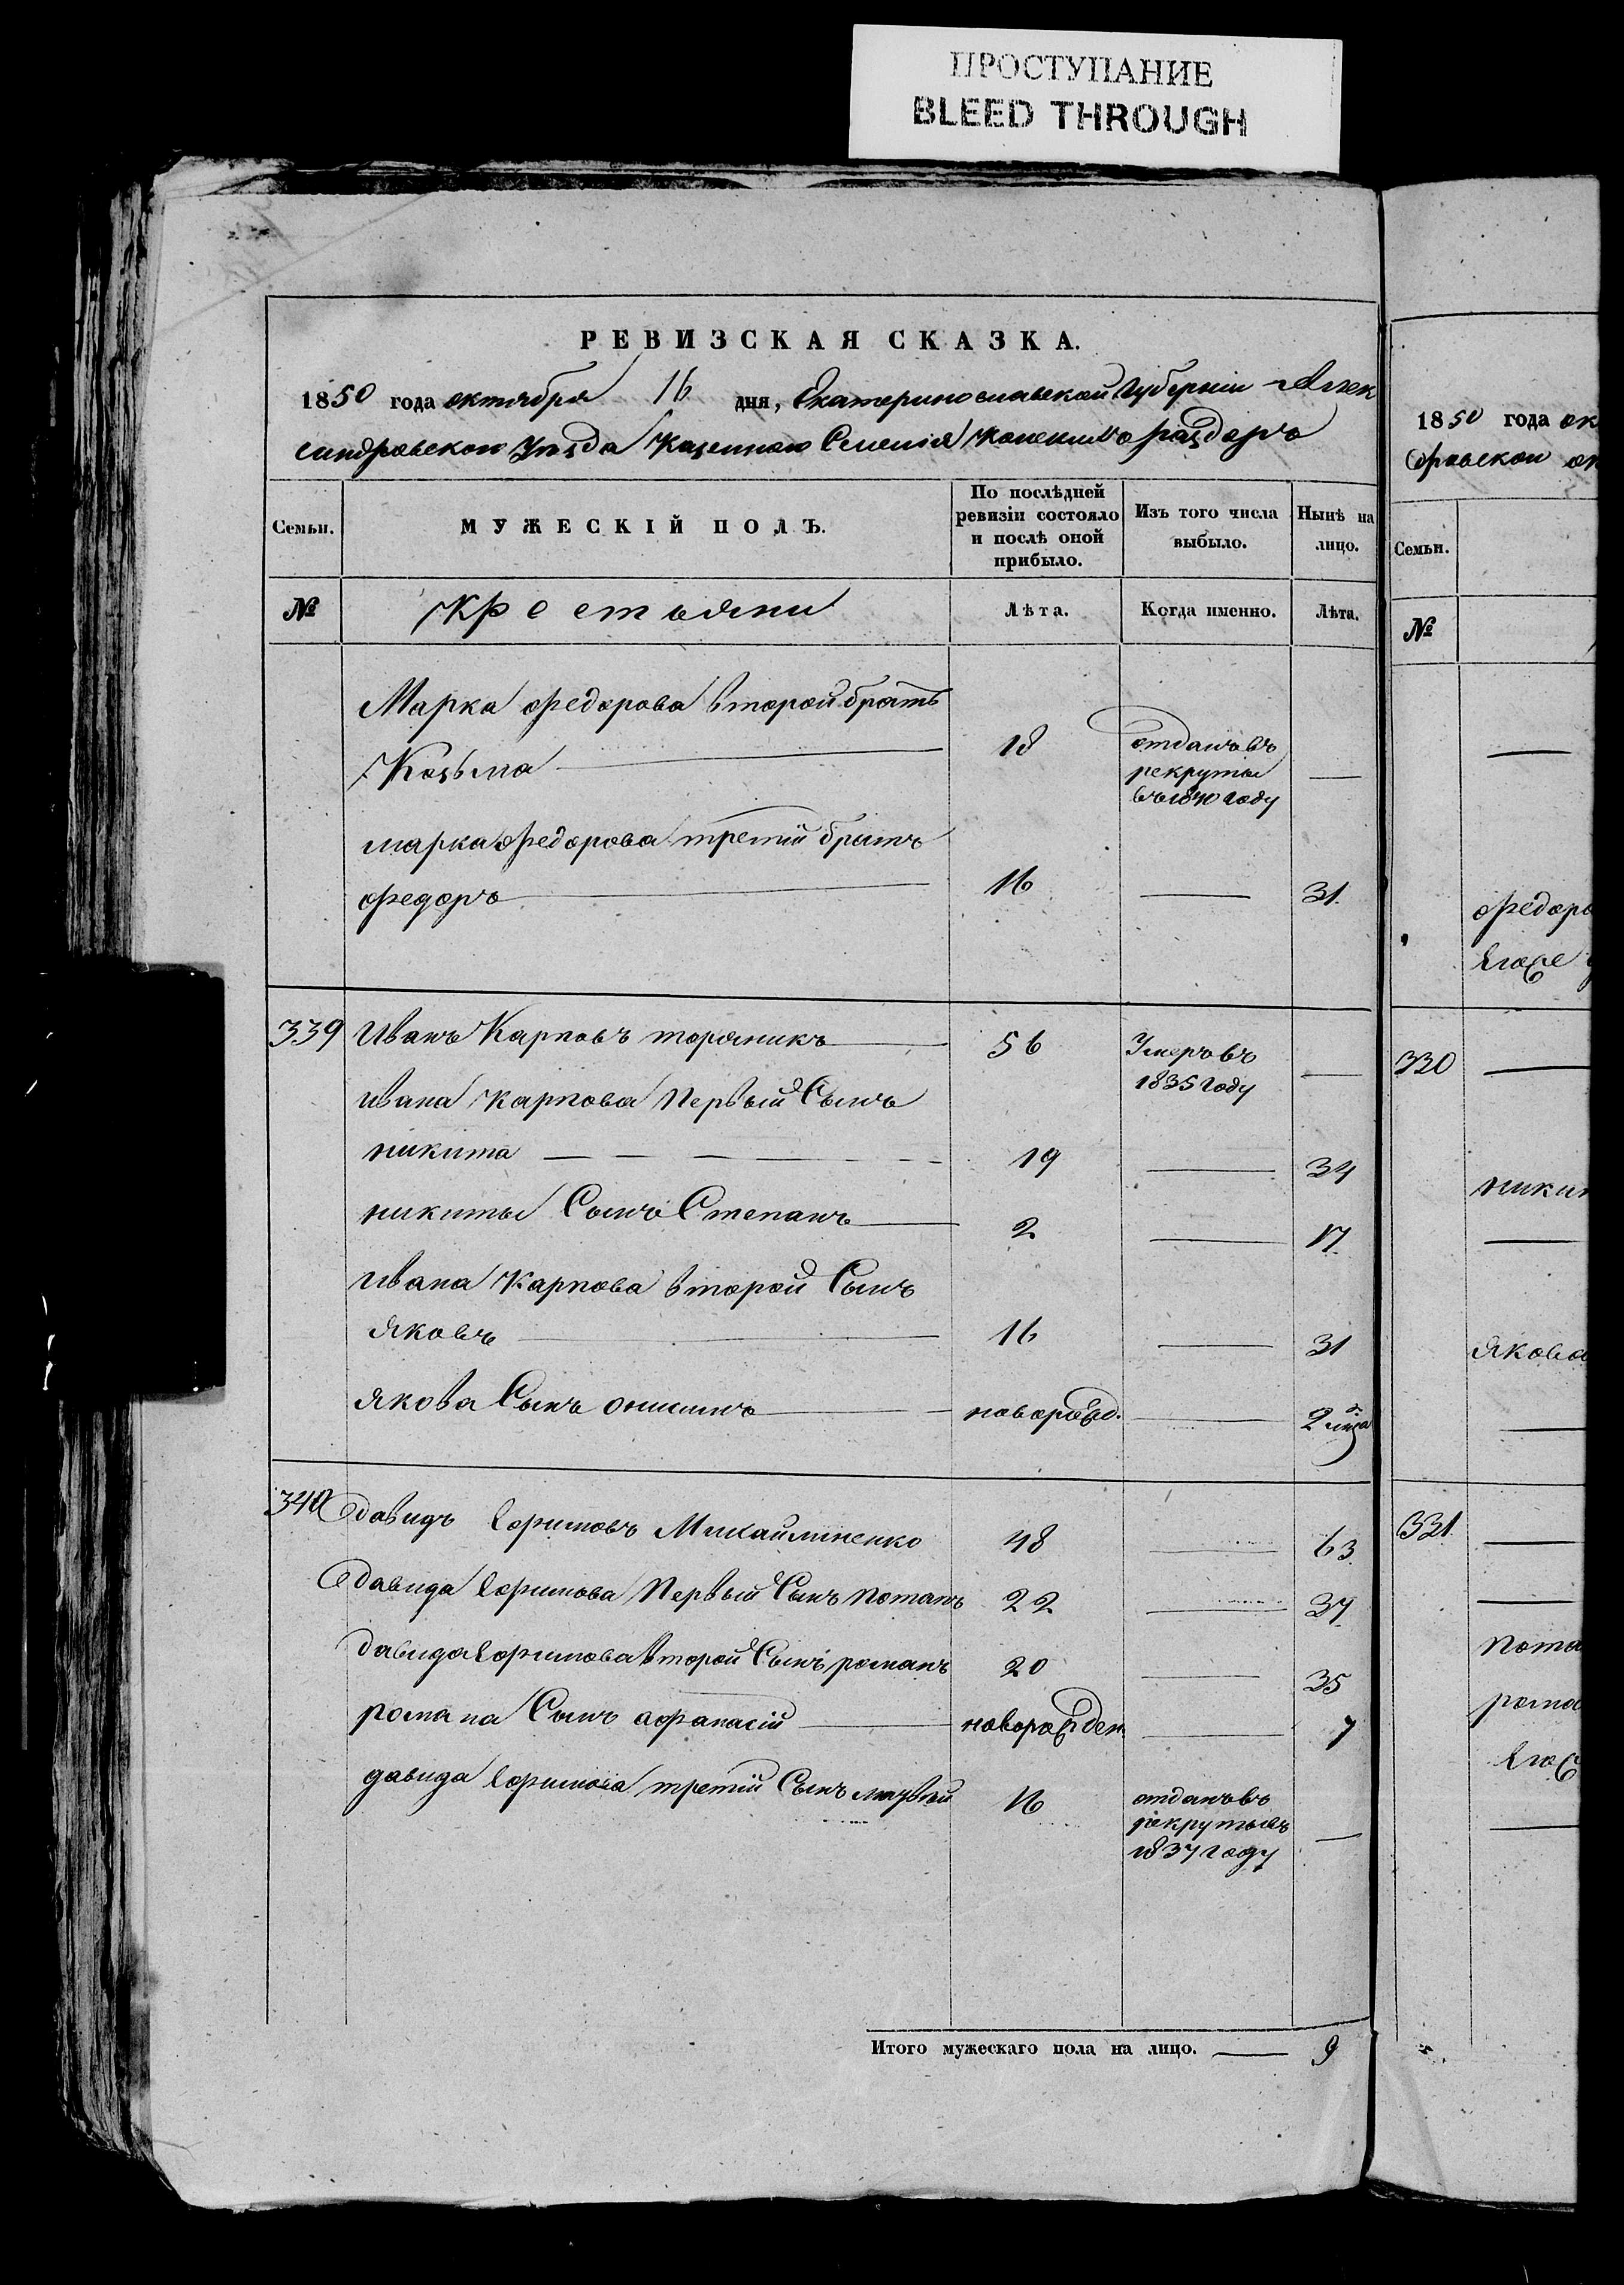 ПРОСТУПАНИЕ
BLEED THROUGH
РЕВИЗСКАЯ СКАЗКА.
1850 года октября 16 дня, Екатеринославской Губернии Алек
сандровскаго Уезда Казеннаго Селения Конскихъ раздоръ
Семьи.
МУЖЕСКІЙ ПОЛЪ.
По послѣдней ревизіи состояло и послѣ оной прибыло.
Изъ того числа выбыло.
Нынѣ на лицо.
№
Крестьяни
Лѣта.
Когда именно.
Лѣта.
Марка Федорова второй братъ
Козьма 18 отданъ въ рекруты въ 1840 году
марка Федорова третій братъ
федоръ 16 31.
339 Иванъ Карповъ 56 Умеръ въ 1835 году
ивана Карпова Первый Сынъ
никита 19 34
никиты Сынъ Степанъ 2 17.
ивана Карпова второй Сынъ
Яковъ 16 31
якова Сынъ онисимъ новорожд. 2
340 давидъ Ефимовъ Михайличенко 48 63
давида Ефимова Первый Сынъ потапъ 22 37
давида Ефимова второй Сынъ романъ 20 35
романа Сынъ афанасій новорожден. 7
давида Ефимова третій Сынъ 16 отданъ въ рекруты въ 1837 году
Итого мужескаго пола на лицо. 9
1850 года ок
Семьи.
№
федора
330
никит
Якова
331
пота
рома